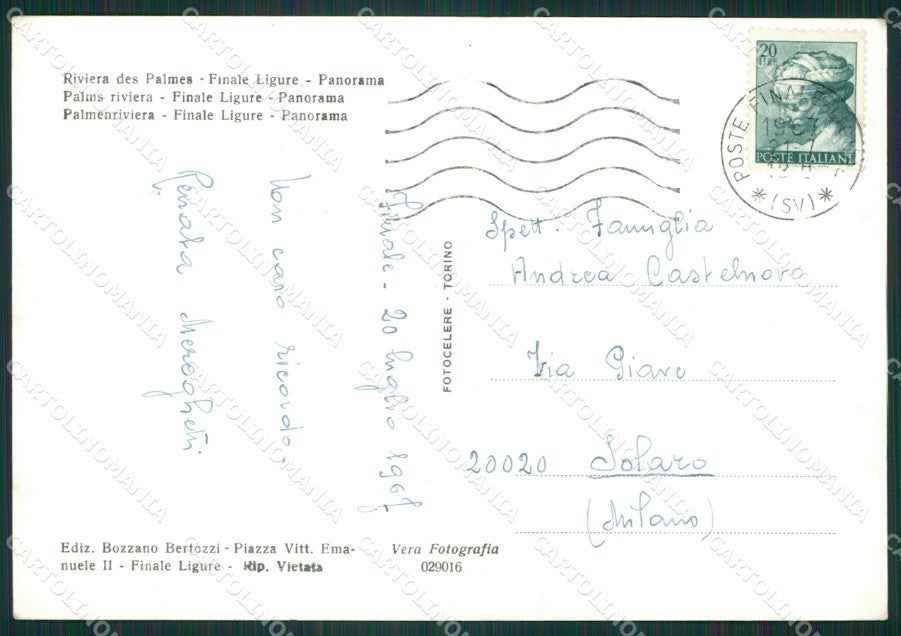 Riviera des Palmes - Finale Ligure - Panorama
Palms riviera - Finale Ligure - Panorama
Palmenriviera - Finale Ligure - Panorama
20
LIRE
POSTE ITALIANE
POSTE FINALE
1967
* (SV) *
Finale - 20 luglio 1967
Un caro ricordo.
Renata Mereghetti
FOTOCELERE - TORINO
Spett. Famiglia
Andrea Castelnovo
Via Piave
20020 Solaro
(Milano)
Ediz. Bozzano Bertozzi - Piazza Vitt. Ema-
nuele II - Finale Ligure - Rip. Vietata
Vera Fotografia
029016
CARTOLINOMANIA